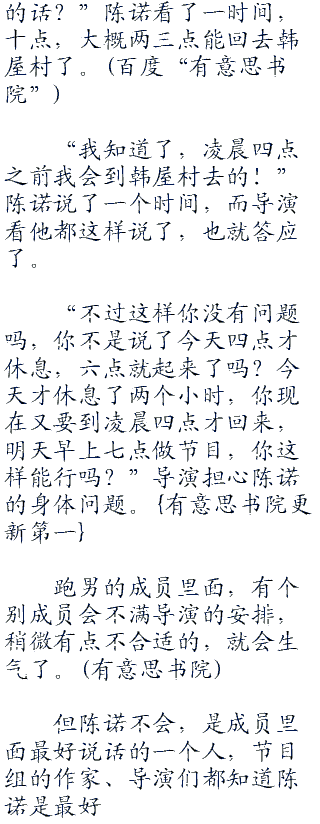 的话？”陈诺看了一时间，
十点，大概两三点能回去韩
屋村了。(百度“有意思书
院”)
“我知道了，凌晨四点
之前我会到韩屋村去的！”
陈诺说了一个时间，而导演
看他都这样说了，也就答应
了。
“不过这样你没有问题
吗，你不是说了今天四点才
休息，六点就起来了吗？今
天才休息了两个小时，你现
在又要到凌晨四点才回来，
明天早上七点做节目，你这
样能行吗？”导演担心陈诺
的身体问题。{有意思书院更
新第一}
跑男的成员里面，有个
别成员会不满导演的安排，
稍微有点不合适的，就会生
气了。(有意思书院)
但陈诺不会，是成员里
面最好说话的一个人，节目
组的作家、导演们都知道陈
诺是最好